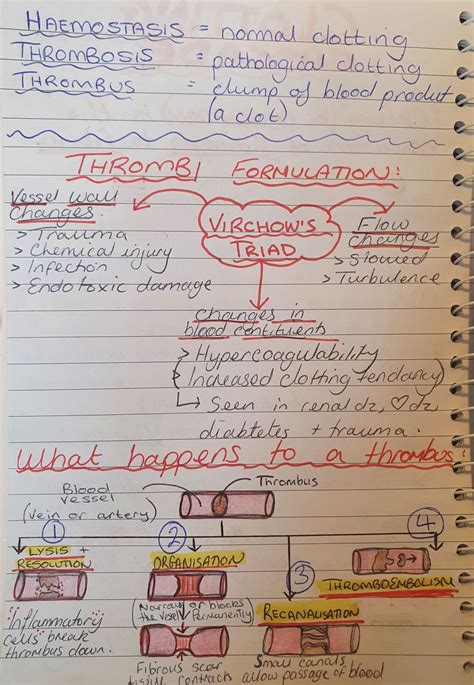 HAEMOSTASIS = normal clotting
THROMBOSIS = pathological clotting
THROMBUS = clump of blood produt
(a clot)
THROMBI FORMULATION:
Vessel Wall
Changes.
> Trauma
> Chemical injury
> Infection
> Endotoxic damage
VIRCHOW'S
TRIAD
Flow
Changes
> Slowed
> Turbulence
Changes in
blood contituents
> Hypercoagulability
(Increased clotting tendancy)
↳ Seen in renal dz, ♡ dz,
diabtetes + trauma.
What happens to a thrombus:
Blood
vessel
(vein or artery)
Thrombus
1
LYSIS +
RESOLUTION
Inflammatory
cells break
thrombus down.
2
ORGANISATION
Narrows or blocks
the vessel Permanently
Fibrous scar
tissue contracts
3
RECANALISATION
Small canals
allow passage of blood
4
THROMBOEMBOLISM